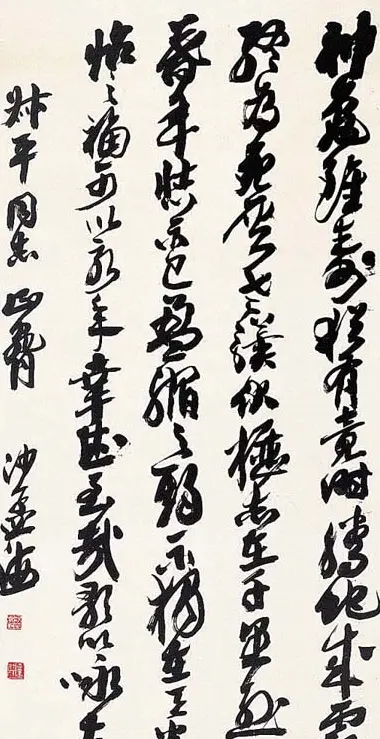 神龜雖壽猶有竟時騰虵成霧
終為土灰老驥伏櫪志在千里烈
暮年壯心不已盈縮之期不獨在天
怡之福可以永年幸甚至哉歌以咏志
平同志正 沙孟海